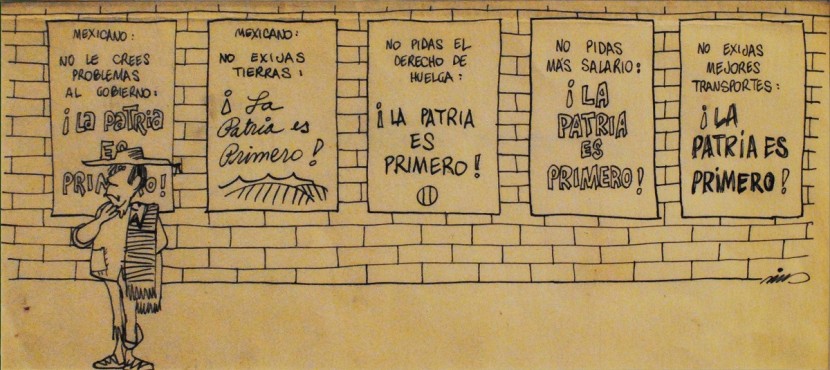 MEXICANO:
NO LE CREES
PROBLEMAS
AL GOBIERNO:
¡LA PATRIA
ES
PRIMERO!
MEXICANO:
NO EXIJAS
TIERRAS:
¡La
Patria es
Primero!
NO PIDAS EL
DERECHO DE
HUELGA:
¡LA PATRIA
ES
PRIMERO!
NO PIDAS
MÁS SALARIO:
¡LA
PATRIA
ES
PRIMERO!
NO EXIJAS
MEJORES
TRANSPORTES:
¡LA
PATRIA ES
PRIMERO!
rius